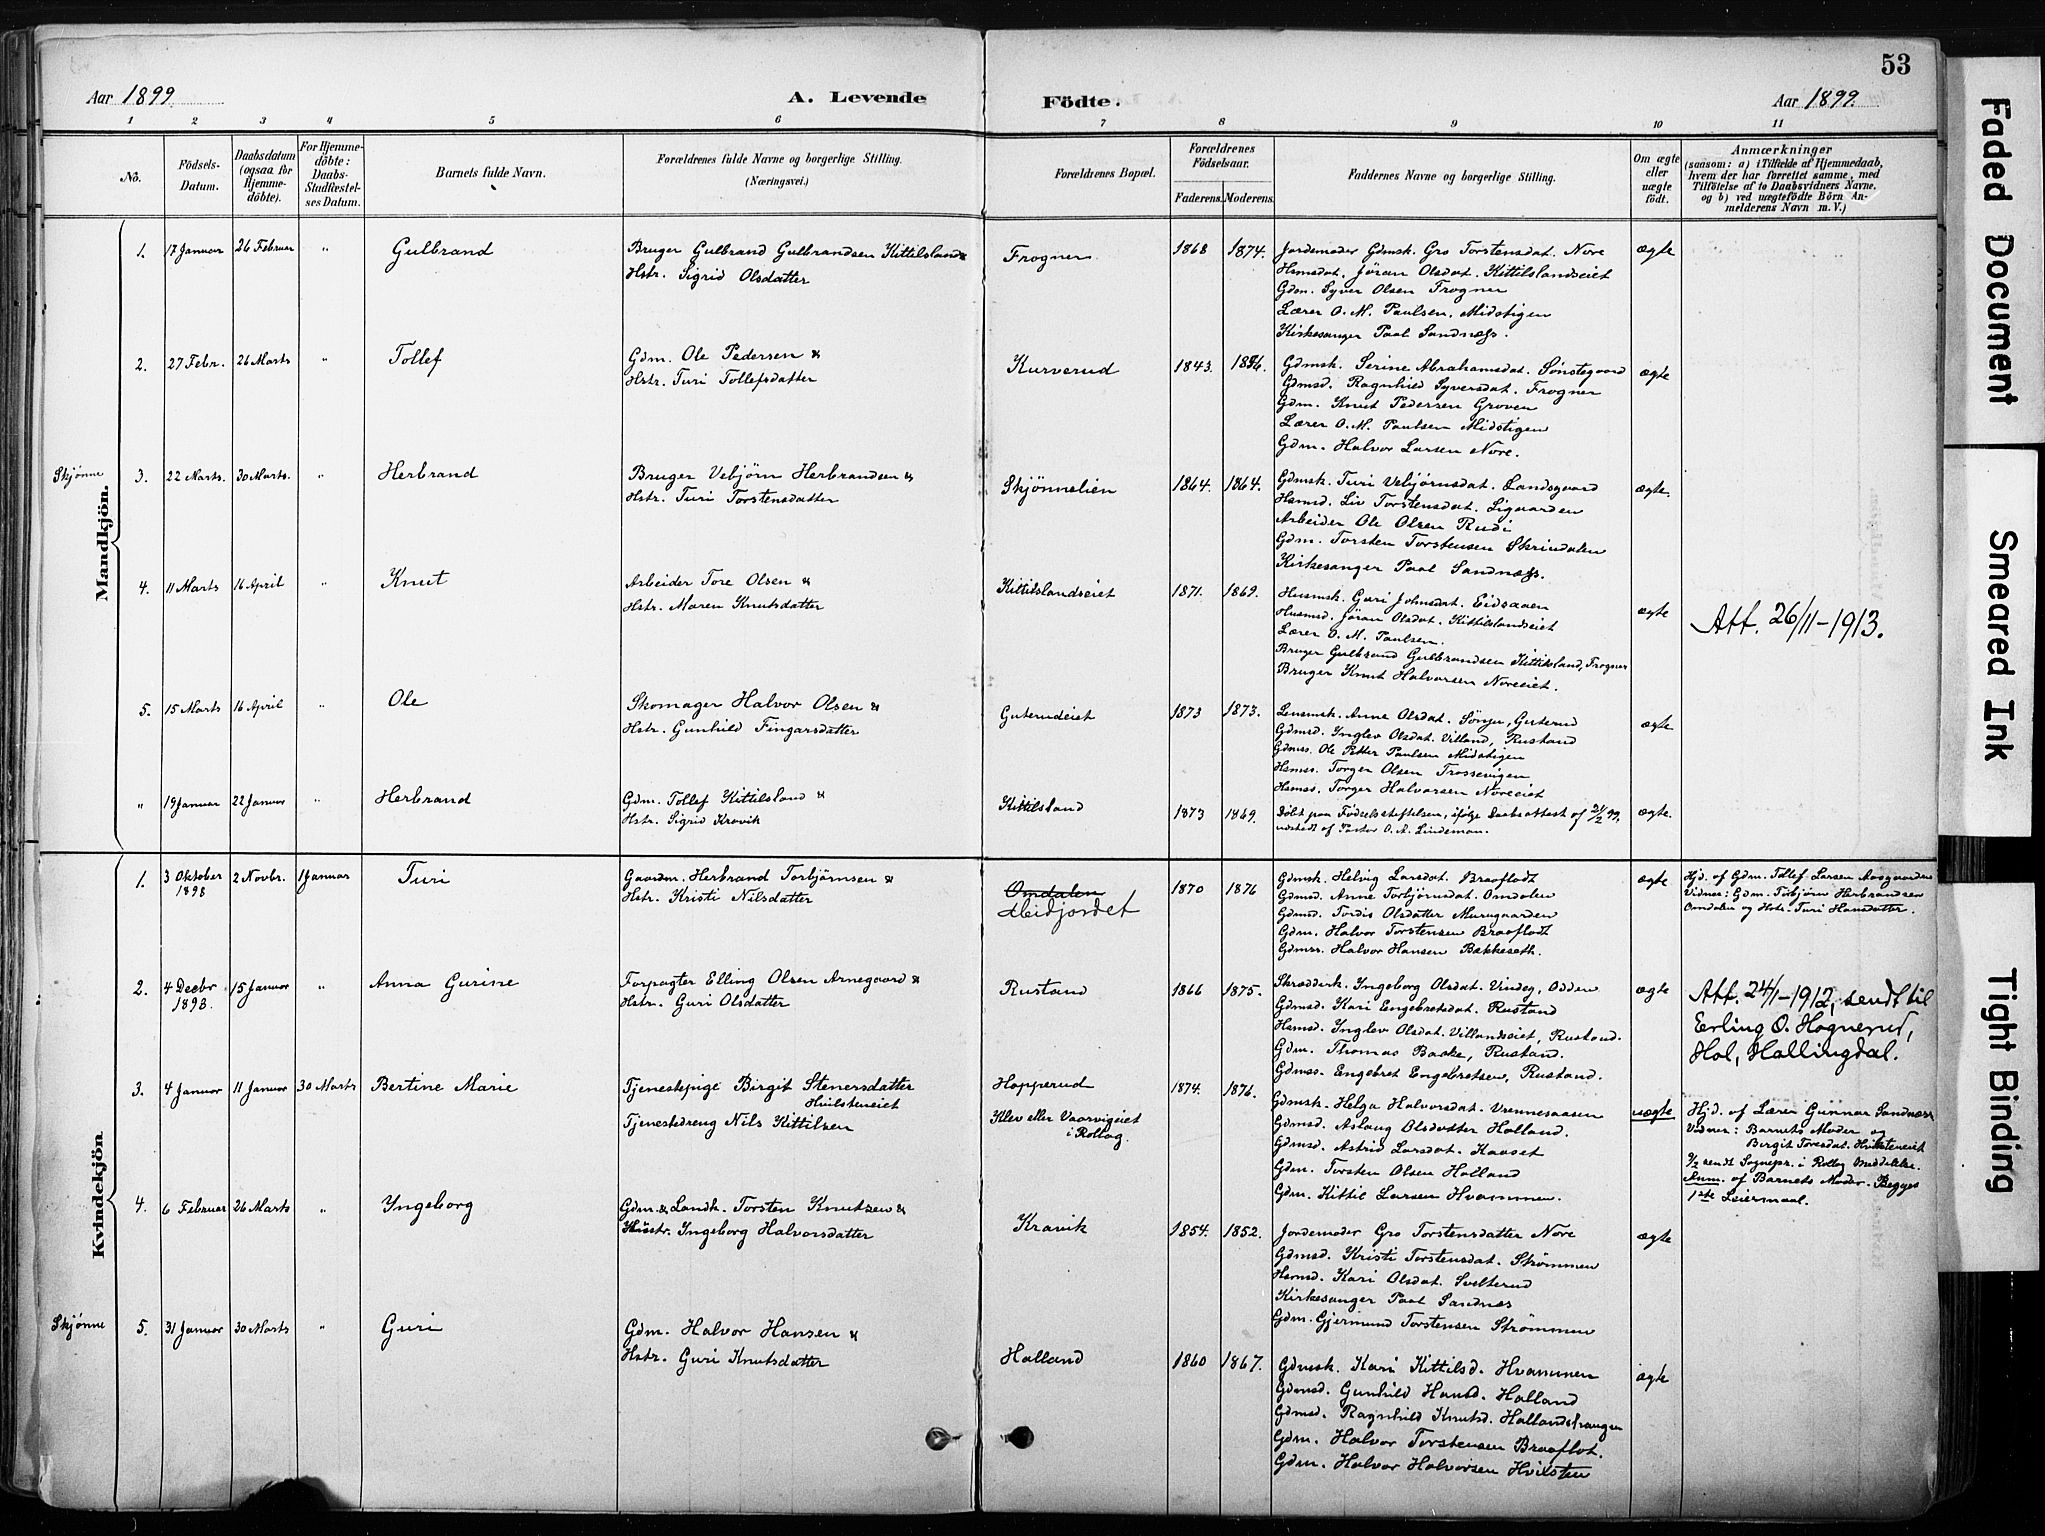 53
Aar 1899.
A. Levende
Födte.
Aar 1899.
1 2 3 4 5 6 7 8 9 10 11
No.
Födsels-
Datum.
Daabsdatum
(ogsaa for
Hjemme-
döbte).
For Hjemme-
döbte:
Daabs-
Stadfæstel-
ses Datum.
Barnets fulde Navn.
Forældrenes fulde Navne og borgerlige Stilling.
(Næringsvei.)
Forældrenes Bopæl.
Forældrenes
Födselsaar.
Faderens. Moderens.
Faddernes Navne og borgerlige Stilling.
Om ægte
eller
uægte
födt.
Anmærkninger
(saasom: a) i Tilfælde af Hjemmedaab,
hvem der har forrettet samme, med
Tilföielse af to Daabsvidners Navne.
og b) ved uægtefödte Börn An-
melderens Navn m. V.)
Mandkjön.
1. 17 Januar 26 Februar " Gulbrand
Bruger Gulbrand Gulbrandsen Kittilsland &
Hstr. Sigrid Olsdatter
Frogner 1868 1874.
Jordemoder Gdmsk. Gro Torstensdat. Nore
Hsmsdat. Jöran Olsdat. Kittilslandseiet
Gdm. Syver Olsen Frogner
Lærer O. M. Paulsen, Midstigen
Kirkesanger Paal Sandnæss.
ægte
2. 27 Febr. 26 Marts " Tollef
Gdm. Ole Pedersen &
Hstr. Turi Tollefsdatter
Kurverud 1843. 1856.
Gdmsk. Serine Abrahamsdat. Sönstegaard
Gdmsd. Ragnhild Syversdat. Frogner
Gdm. Knut Pedersen Groven
Lærer O. M. Paulsen Midstigen
Gdm. Halvor Larsen Nore.
ægte
Skjönne
3. 22 Marts. 30 Marts. " Herbrand
Bruger Vebjörn Herbrandsen &
Hstr. Turi Torstensdatter
Skjönnelien 1864. 1864.
Gdmsk. Turi Vebjörnsdat. Landsgaard
Hsmsd. Liv Torstensdat. Ligaarden
Arbeider Ole Olsen Rudi
Gdm. Torsten Torstensen Skrindalen
Kirkesanger Paal Sandnæss.
ægte.
4. 11 Marts 16 April " Knut
Arbeider Tore Olsen &
Hstr. Maren Knutsdatter
Kittilslandseiet 1871. 1869.
Husmsk. Guri Johnsdat. Eidsaaen
Husmsd. Jöran Olsdat. Kittilslandseiet
Lærer O. M. Paulsen.
Bruger Gulbrand Gulbrandsen Kittilsland, Frogner
Bruger Knut Halvorsen Noreeiet.
ægte
Att. 26/11-1913.
5. 15 Marts 16 April " Ole
Skomager Halvor Olsen &
Hstr. Gunhild Fingarsdatter
Guterudeiet 1873 1873.
Lensmsk. Anne Olsdat. Sönju, Guterud
Gdmsd. Inglev Olsdat. Villand, Rustand
Gdmss. Ole Petter Paulsen Midstigen
Hsmss. Torger Olsen Trossevigen
Hsmss. Torger Halvorsen Noreeiet
ægte
" 19 Januar 22 Januar " Herbrand
Gdm. Tollef Kittilsland &
Hstr. Sigrid Kravik
Kittilsland 1873 1869.
Döbt paa Födselsstiftelsen, ifölge Daabsattest af 21/2 99.
udstedt af Pastor O. A. Lindeman.
ægte.
Kvindekjön
1. 3 Oktober
1898
2 Novbr. 1 Januar Turi
Gaardm. Herbrand Torbjörnsen &
Hstr. Kristi Nilsdatter
Omdalen
Heidjordet
1870 1876
Gdmsk. Helvig Larsdat. Braaflodt
Gdmsd. Anne Torbjörnsdat. Omdalen
Gdmsd. Tordis Olsdatter Murugaarden
Gdm. Halvor Torstensen Braaflodt
Gdmss. Halvor Hansen Bakkeseth.
ægte
Hjd. af Gdm. Tollef Larsen Aasgaarden
Vidner: Gdm. Torbjörn Herbrandsen
Omdalen og Hstr. Turi Hansdatter.
2. 4 Decbr
1898.
15 Januar " Anna Gurine
Forpagter Elling Olsen Arnegaard &
Hstr. Guri Olsdatter
Rustand 1866 1875.
Skrædderk. Ingeborg Olsdat. Vindeg, Odden
Gdmsd. Kari Engebretsdat. Rustand
Hsmsd. Inglev Olsdat. Villandseiet, Rustand.
Gdm. Thomas Baake, Rustand.
Gdmss. Engebret Engebretsen, Rustand.
ægte
Att. 24/1-1912, sendt til
Erling O. Hagnerud,
Hol, Hallingdal.
3. 4 Januar 11 Januar 30 Marts Bertine Marie
Tjenestepige Birgit Stenersdatter
Hvilsteneiet
Tjenestedreng Nils Kittilsen
Hopperud
Klev eller Vaarvigeiet
i Rollag.
1874. 1876.
Gdmsk. Helga Halvorsdat. Vrennesaasen
Gdmsd. Aslaug Olsdatter Holland.
Gdmsd. Astrid Larsdat. Kaaset
Gdm. Torsten Olsen Holland
Gdm. Kittil Larsen Hvammen.
uægte
Hjd. af Lærer Gunnar Sandnæss
Vidner: Barnets Moder og
Birgit Toresdat. Hvilsteneiet
9/2 sendt Sognepr. i Rollag Meddelelse.
Anm. af Barnets Moder. Begges
1ste Leiermaal.
4. 6 Februar 26 Marts " Ingeborg
Gdm. & Landh. Torsten Knutsen &
Hustr. Ingeborg Halvorsdatter
Kravik 1854. 1852.
Jordemoder Gro Torstensdatter Nore
Gdmsd. Kristi Torstensdat. Strömmen
Hsmsd. Kari Olsdat. Svelterud
Kirkesanger Paal Sandnes
Gdm. Gjermund Torstensen Strömmen
ægte
Skjönne
5. 31 Januar 30 Marts " Guri
Gdm. Halvor Hansen &
Hstr. Guri Knutsdatter
Holland 1860 1867.
Gdmsk. Kari Kittilsd. Hvammen
Gdmsd. Gunhild Hansd. Halland
Gdmsd. Ragnhild Knutsd. Hallandshaugen
Gdm. Halvor Torstensen Braaflot.
Gdm. Halvor Halvorsen Hvilsten
ægte
Faded Document
Smeared Ink
Tight Binding